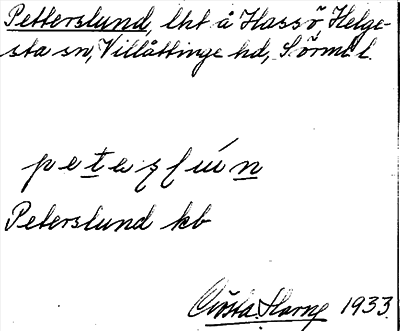 Petterslund, lht å Hassö Helge-
sta sn, Villåttinge hd, Sörml l.
Peterslund kb
Gösta Harne 1933.